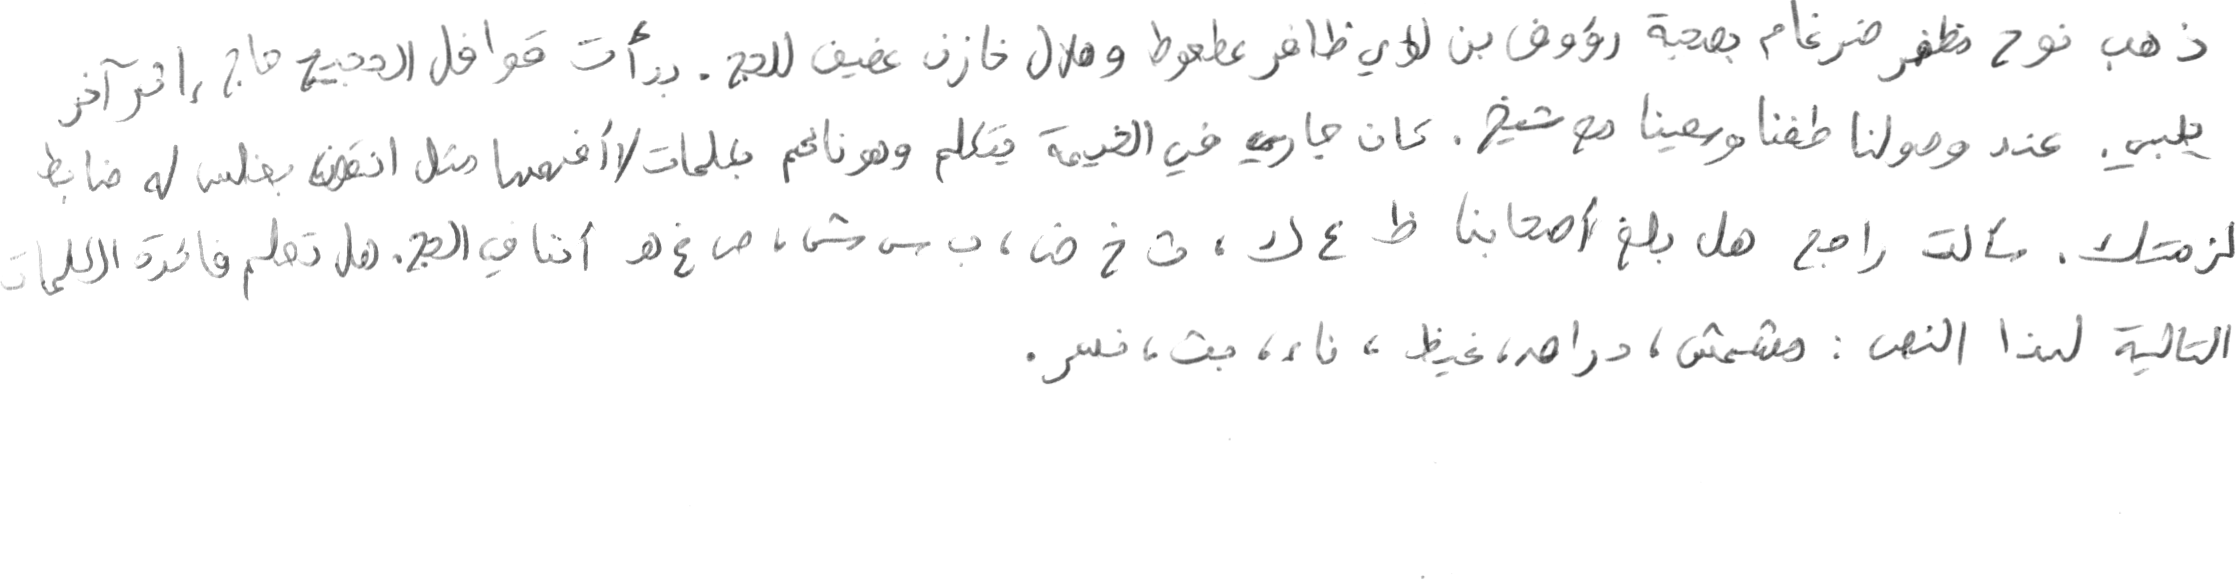 ذهب نوح مظفر ضرغام بصحبة رؤوف بن لؤي ظافر عطعوط وهلال خازن عفيف للحج. بدأت قوافل الحجيج حاج إثر آخر
يلبي. عند وصولنا طفنا وسعينا مع شيخ. كان جاري في الخيمة يتكلم وهو نائم بكلمات لا أفهمها مثل انقض بغلس له ضابط
لزمتك. سألت راجح هل بلغ أصحابنا ظ ع ك، ث خ ض، ب س ش، ص غ هـ أننا في الحج. هل تعلم فائدة الكلمات
التالية لهذا النص: مشمش، دراهم، غيظ، ناء، بث، نسر.